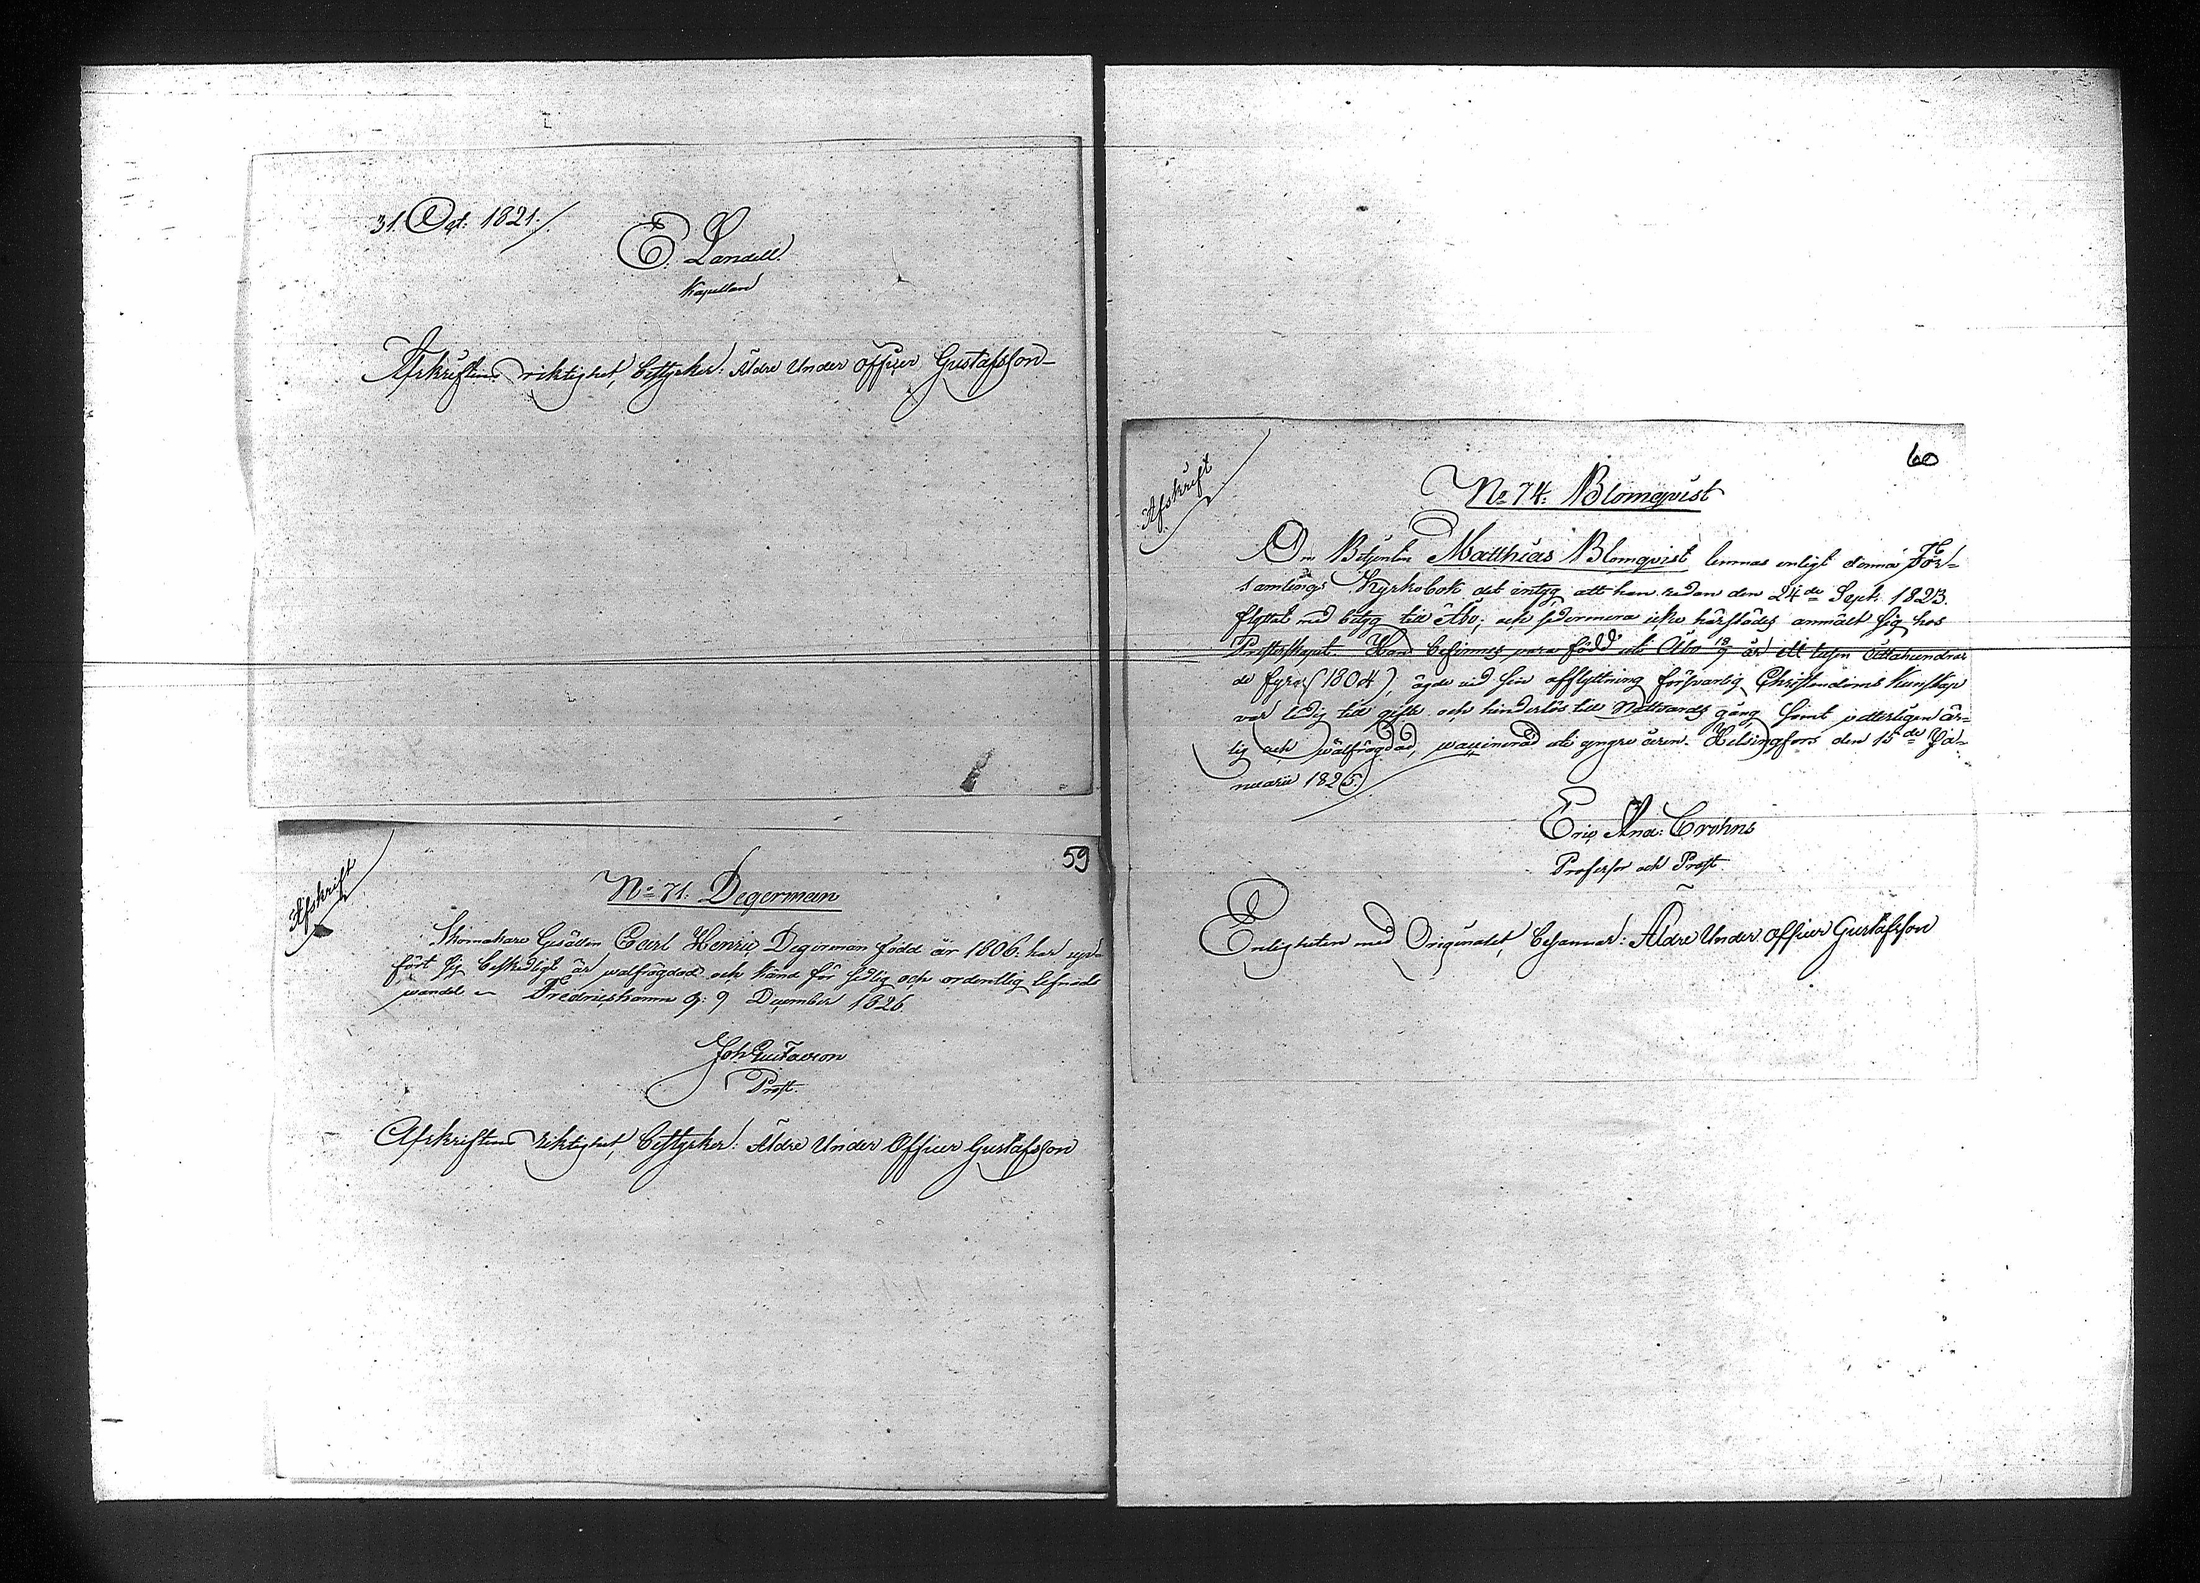 31. Oct: 1821./.
E. Landell.
Kapellan
Afskriftens riktighet, bestyrker: Äldre Under Officer Gustafsson
59
Afskrift
No 71. Degerman
Skomakare Gesällen Carl Henric Degerman född år 1806. har upp-
fört sig beskedligt är walfrägdad och känd för sedlig och ordentlig lefnads
wandel Fredricshamn d: 9 December 1826.
Joh Gustavson
Prost.
Afskriftens riktighet, bestyrker: Äldre Under Officer Gustafsson
60
Afskrift
No 74. Blomqvist
Om Betjenten Matthias Blomqvist lemnas enligt denna För-
samlings Kyrkobok det intyg att han redan den 24de Sept: 1823.
flyttat med betyg till Åbo; och sedermera icke härstädes anmält sig hos
Presterskapet. Han befinnes vara född uti Åbo 18/9 år ett tusen åttahundra
de fyra (1804), ägde vid sin afflyttning försvarlig Christendoms kunskap
var ledig till gifte och hinderlös till Nattvards gång samt ytterligen är-
lig och wälfrägdad, waccinerad uti yngre åren. Helsingfors den 15de Ja-
nuarii 1825.
Eric And: Crohns
Professor och Prost.
Enligheten med Originalet, besannar: Äldre Under Officer Gustafsson